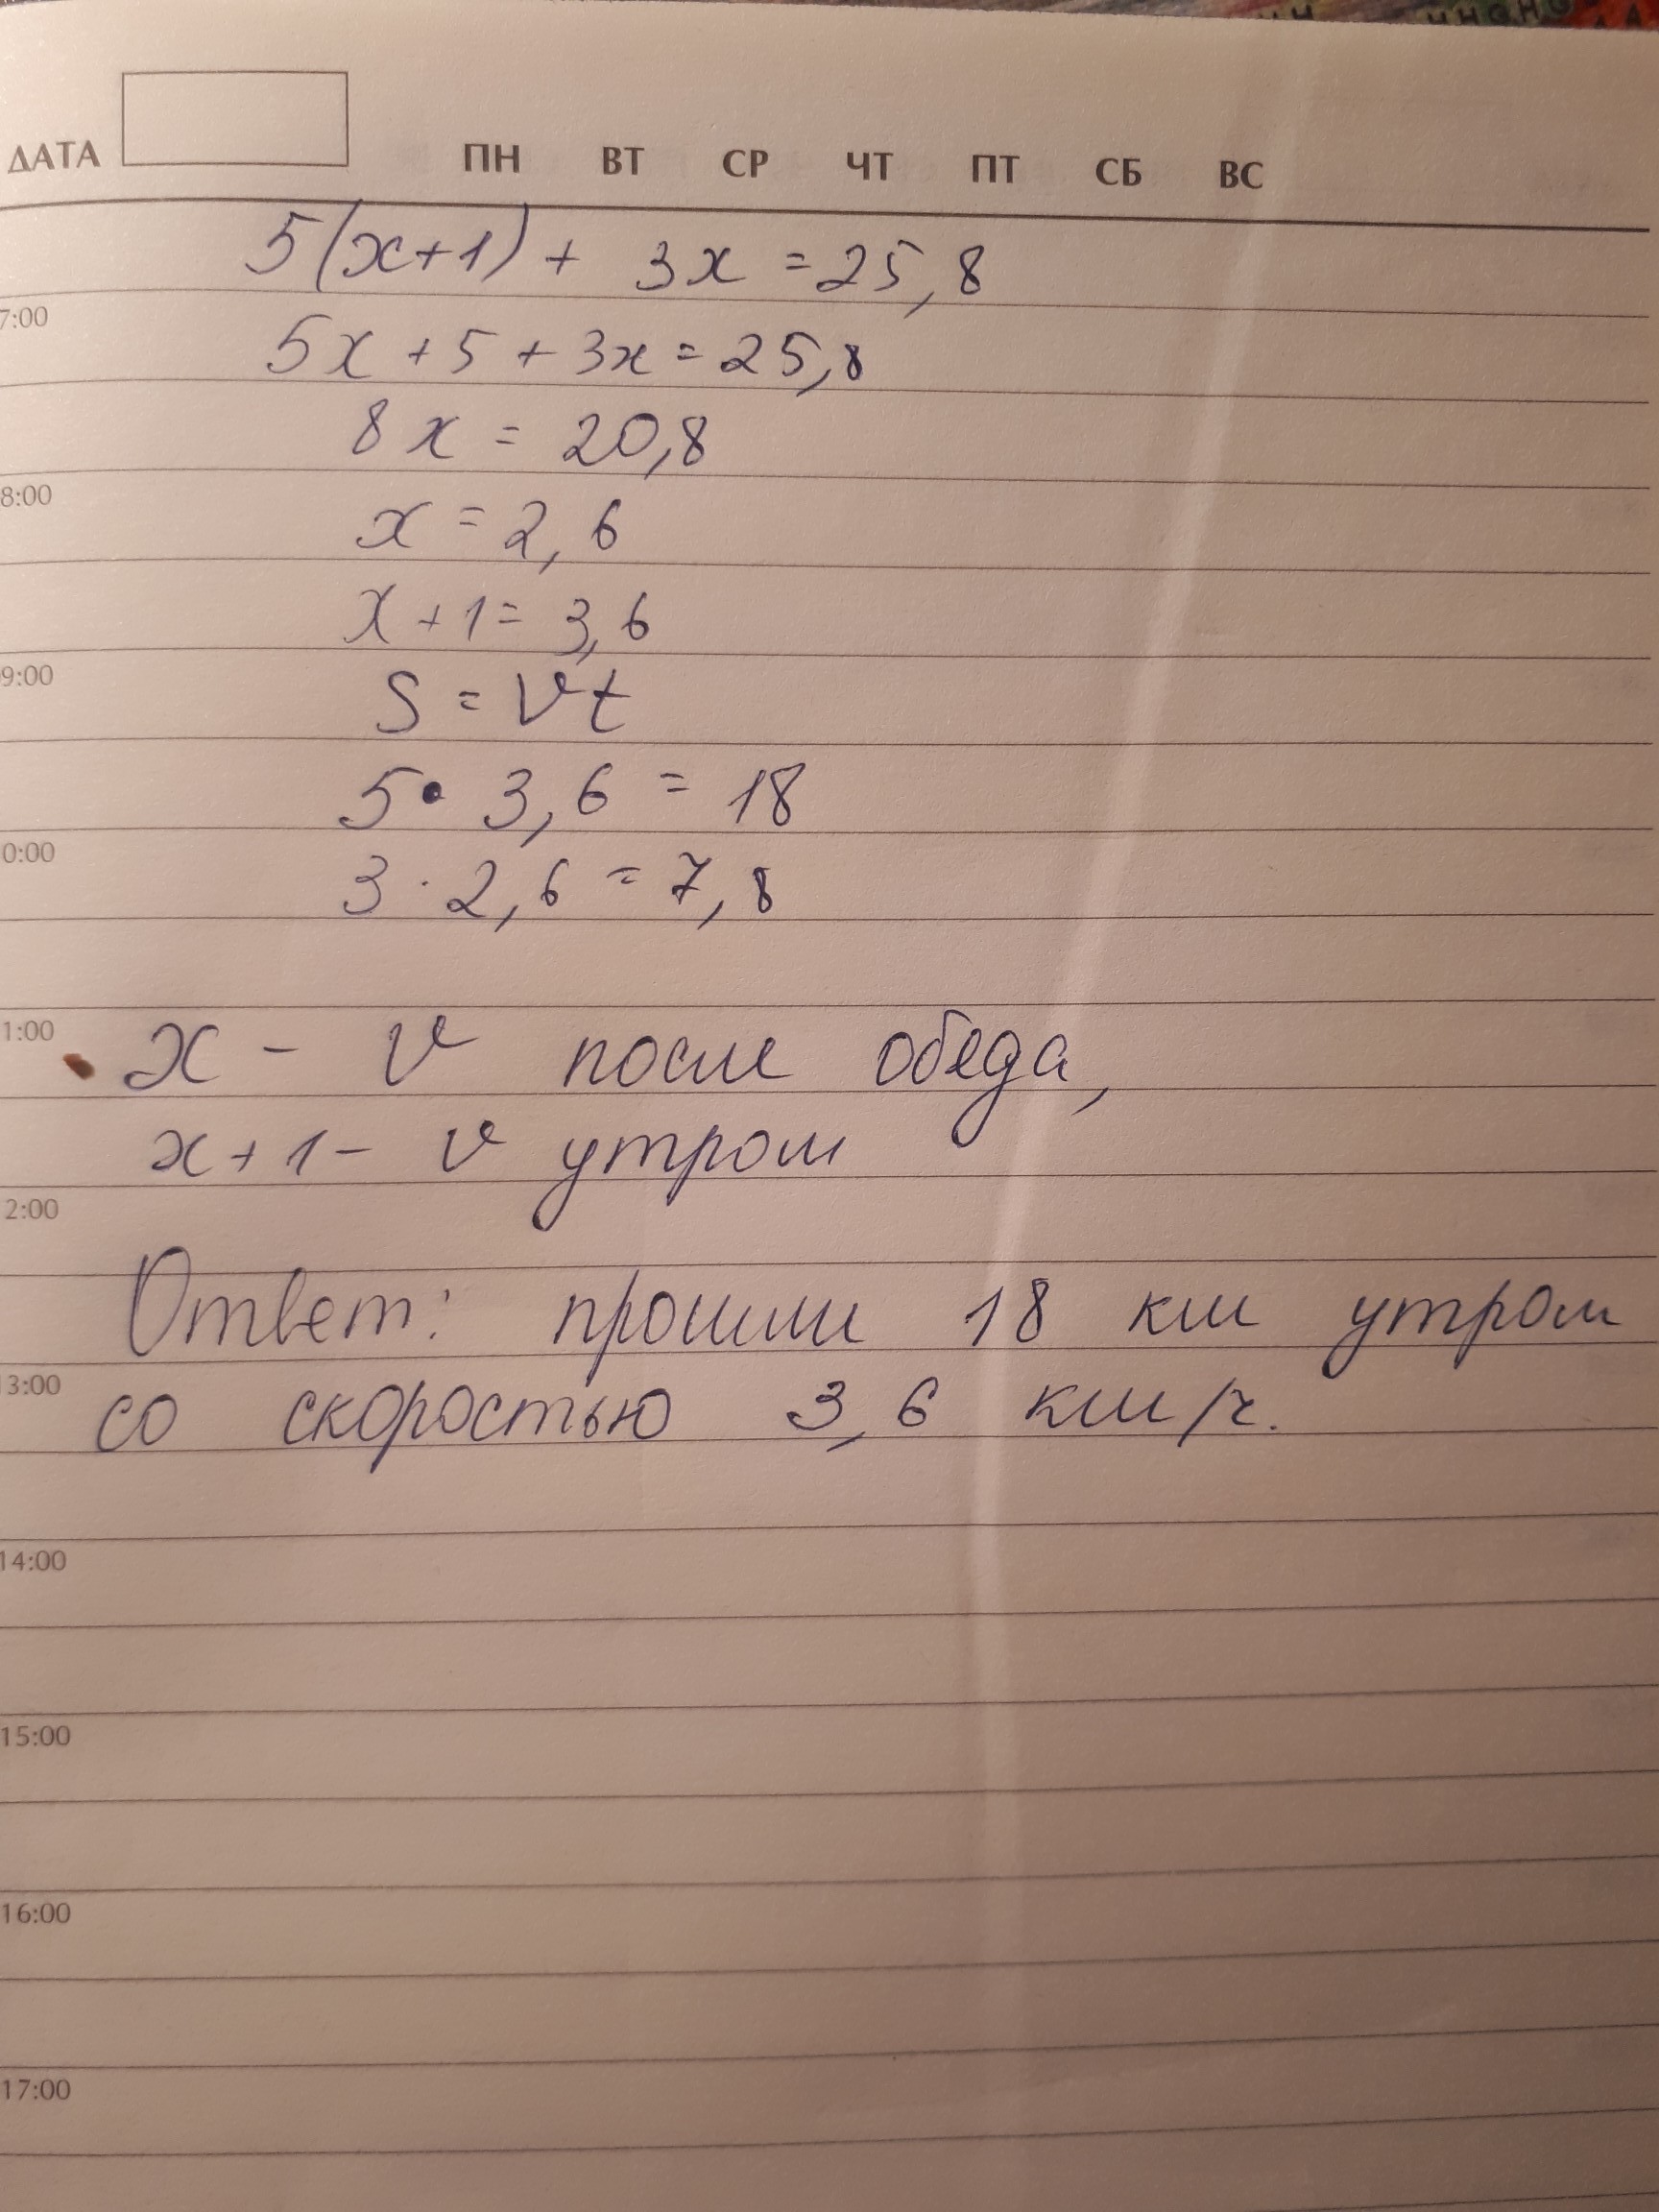 ДАТА ПН ВТ СР ЧТ ПТ СБ ВС
5(x+1) + 3x = 25,8
7:00
5x + 5 + 3x = 25,8
8x = 20,8
8:00
x = 2,6
x + 1 = 3,6
9:00
S = Vt
5 · 3,6 = 18
0:00
3 · 2,6 = 7,8
1:00
x - V после обеда,
x + 1 - V утром
2:00
Ответ: прошли 18 км утром
13:00
со скоростью 3,6 км/ч.
14:00
15:00
16:00
17:00